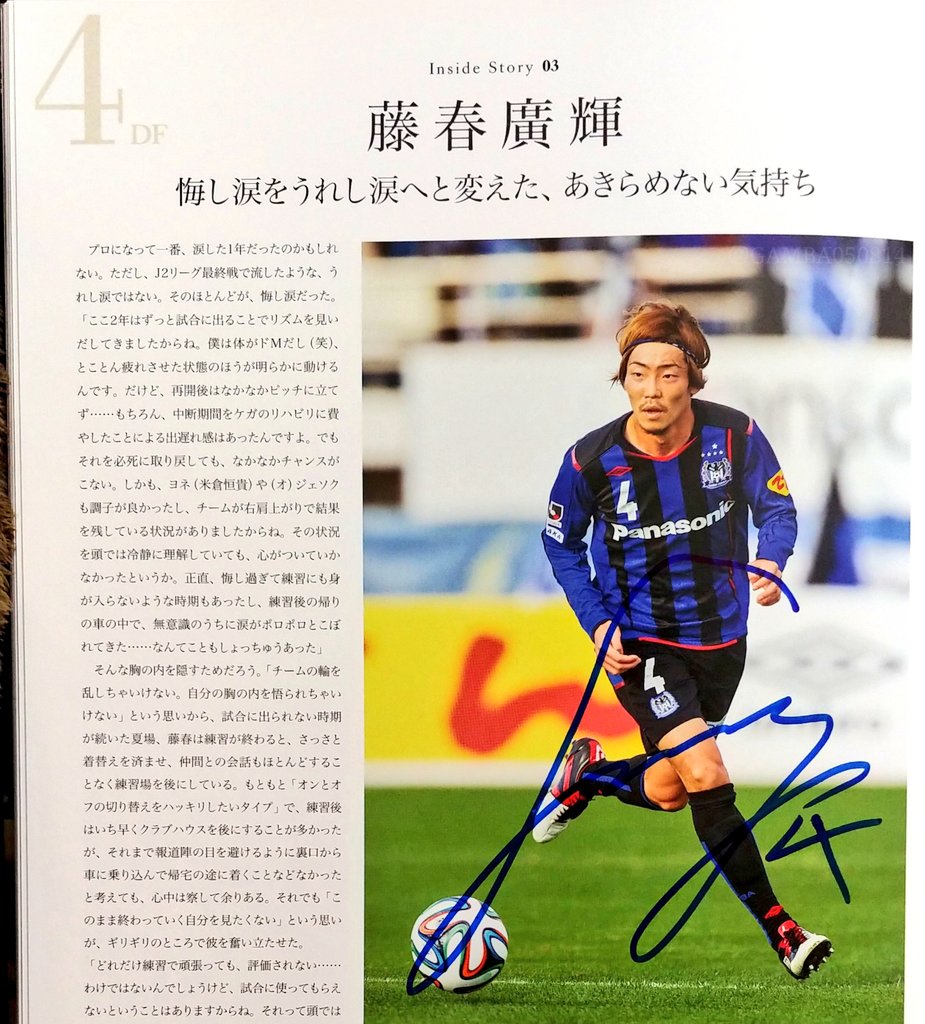 4
DF
Inside Story 03
藤春廣輝
悔し涙をうれし涙へと変えた、あきらめない気持ち
プロになって一番、涙した1年だったのかもしれ
ない。ただし、J2リーグ最終戦で流したような、う
れし涙ではない。そのほとんどが、悔し涙だった。
「ここ2年はずっと試合に出ることでリズムを見い
だしてきましたからね。僕は体がドMだし（笑）、
とことん疲れさせた状態のほうが明らかに動ける
んです。だけど、再開後はなかなかピッチに立て
ず……もちろん、中断期間をケガのリハビリに費
やしたことによる出遅れ感はあったんですよ。でも
それを必死に取り戻しても、なかなかチャンスが
こない。しかも、ヨネ（米倉恒貴）や（オ）ジェソク
も調子が良かったし、チームが右肩上がりで結果
を残している状況がありましたからね。その状況
を頭では冷静に理解していても、心がついていか
なかったというか。正直、悔し過ぎて練習にも身
が入らないような時期もあったし、練習後の帰り
の車の中で、無意識のうちに涙がポロポロとこぼ
れてきた……なんてこともしょっちゅうあった」
そんな胸の内を隠すためだろう。「チームの輪を
乱しちゃいけない。自分の胸の内を悟られちゃい
けない」という思いから、試合に出られない時期
が続いた夏場、藤春は練習が終わると、さっさと
着替えを済ませ、仲間との会話もほとんどするこ
となく練習場を後にしている。もともと「オンとオ
フの切り替えをハッキリしたいタイプ」で、練習後
はいち早くクラブハウスを後にすることが多かった
が、それまで報道陣の目を避けるように裏口から
車に乗り込んで帰宅の途に着くことなどなかった
と考えても、心中は察して余りある。それでも「こ
のまま終わっていく自分を見たくない」という思い
が、ギリギリのところで彼を奮い立たせた。
「どれだけ練習で頑張っても、評価されない……
わけではないんでしょうけど、試合に使ってもらえ
ないということはありますからね。それって頭では
GAMBA050814
4
Panasonic
4
4